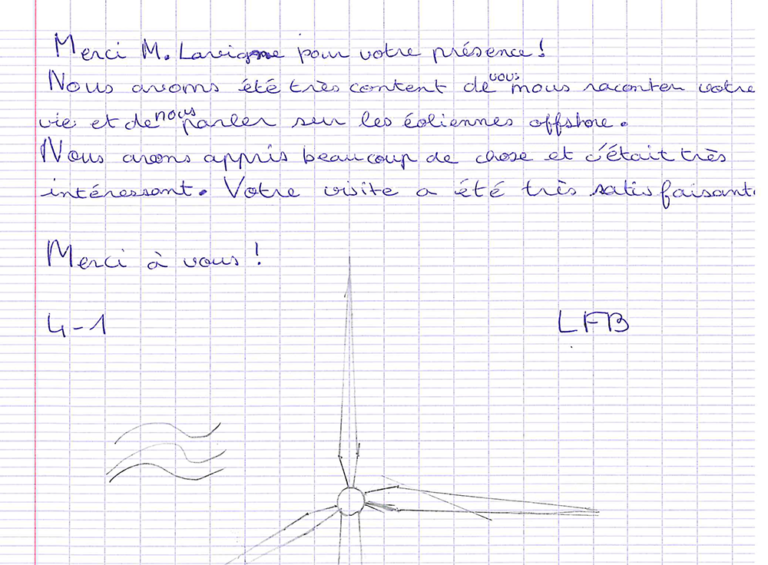 Merci M. Lavigne pour votre présence !
Nous avons été très content de vous nous raconter votre
vie et de nous parler sur les éoliennes offshore.
Nous avons appris beaucoup de chose et c'était très
intéressant. Votre visite a été très satisfaisant.
Merci à vous !
4-1 LFB